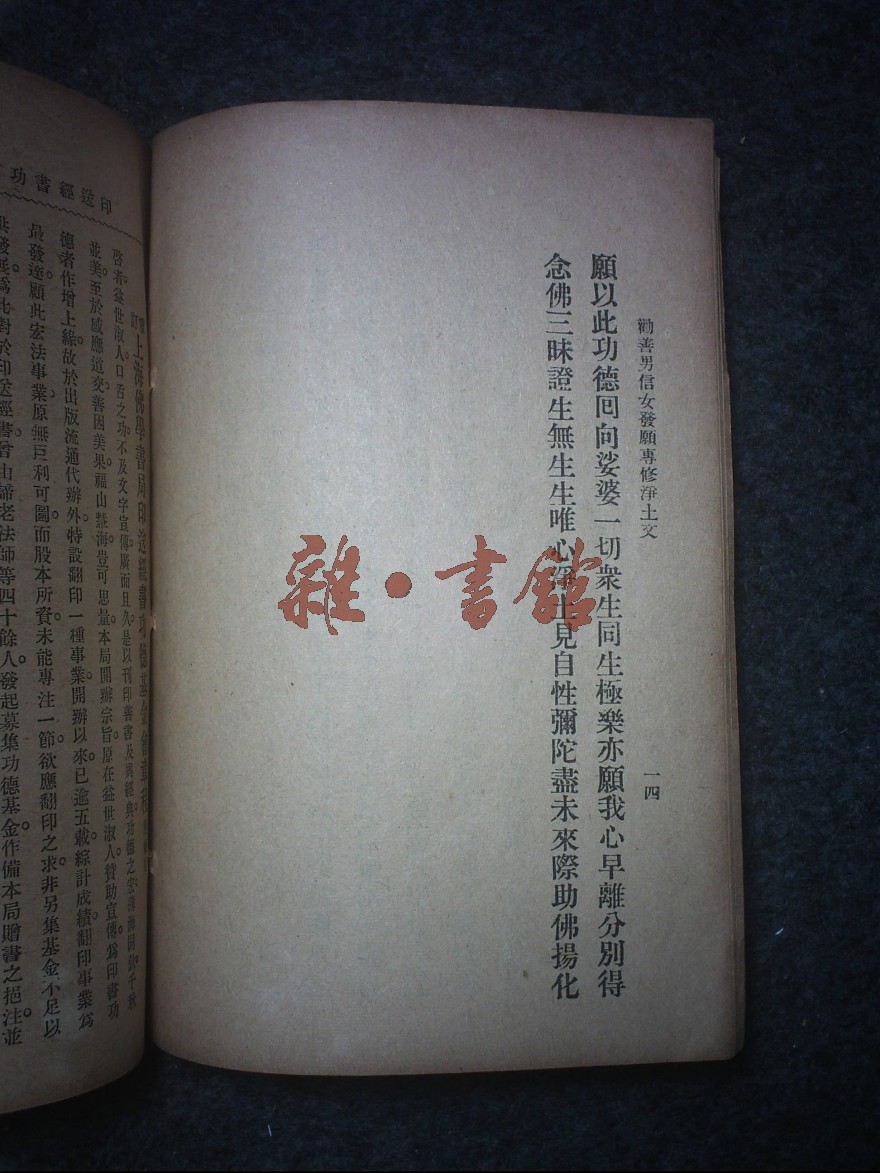 勸善男信女發願專修淨土文
一四
願以此功德囘向娑婆一切衆生同生極樂亦願我心早離分別得
念佛三昧證生無生生唯心淨土見自性彌陀盡未來際助佛揚化
雜·書館
印送經書功
上海佛學書局印送經書功德基金會章程
啓者益世淑人口舌之功不及文字宣傳廣而且久是以刊印善書及與經典功德之宏
並美至於感應道交善因美果福山慧海豈可思量本局開辦宗旨原在益世淑人贊助宣傳爲印書功
德者作增上緣故於出版流通代辦外特設翻印一種事業開辦以來已逾五載綜計成績翻印事業爲
最發達願此宏法事業原無巨利可圖而股本所資未能專注一節欲應翻印之求非另集基金不足以
共發展爲此對於印送經書曾由諦老法師等四十餘人發起募集功德基金作備本局贈書之挹注並